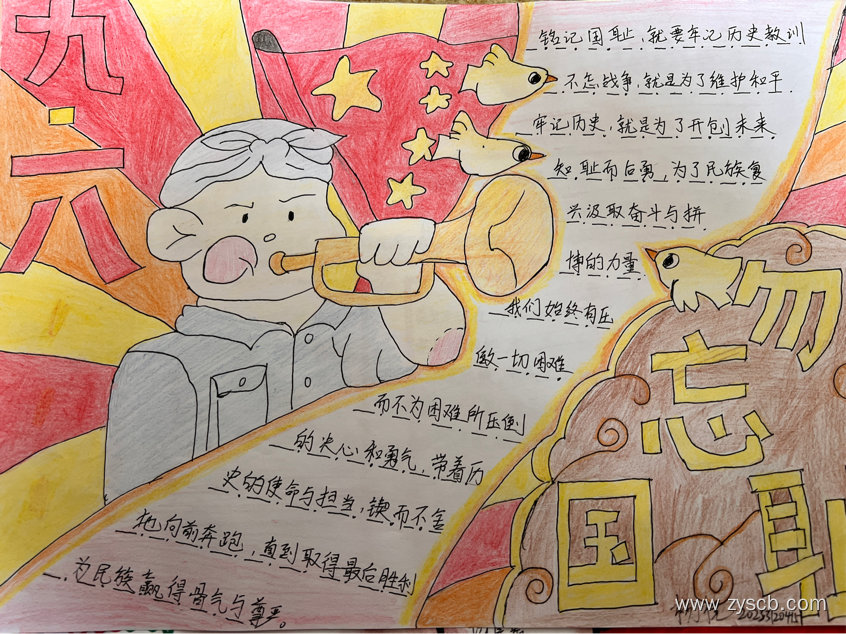 九·一八
铭记国耻,就要牢记历史教训
不忘战争,就是为了维护和平
牢记历史,就是为了开创未来
知耻而后勇,为了民族复
兴汲取奋斗与拼
博的力量
我们始终有压
倒一切困难
而不为困难所压倒
的决心和勇气,带着历
史的使命与担当,锲而不舍
地向前奔跑,直到取得最后胜利
为民族赢得骨气与尊严。
勿
忘
国耻
www.zyscb.com